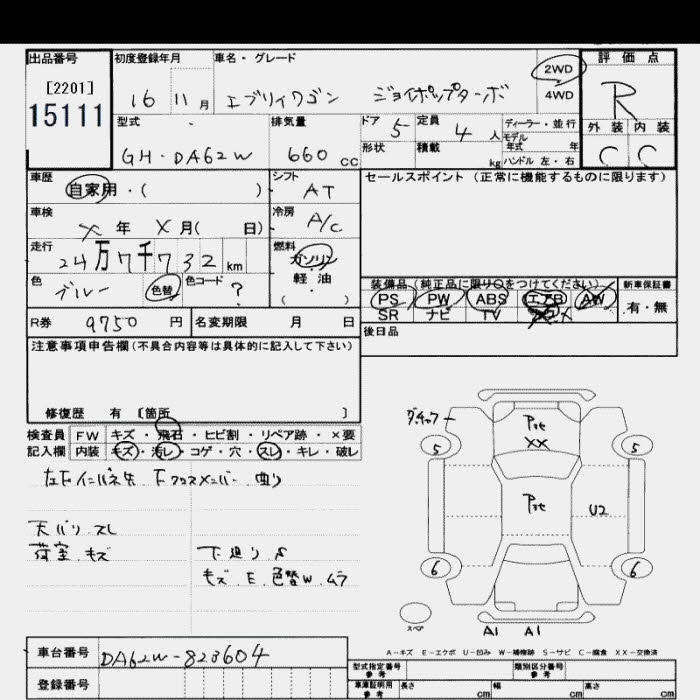 出品番号 初度登録年月 車名・グレード 2WD 評価点
[2201] 16 11月 エブリィワゴン ジョイポップターボ 4WD R
15111
型式 排気量 ドア 5 定員 4人 ディーラー・並行 外装 内装
モデル年式 年
GH-DA62W 660 CC 形状 積載 kg ハンドル 左・右 C C
車歴 シフト セールスポイント (正常に機能するものに限ります)
自家用・( ) AT
車検 冷房
X年 X月( 日) A/C
走行 燃料
24万7千732 km ガソリン
色 色替 色コード 軽油
ブルー ? ( ・ )
装備品(純正品に限り○をつけてください) 新車保証書
PS PW ABS エアB AW 有・無
SR ナビ TV
R券 9750 円 名変期限 月 日 後日品
注意事項申告欄(不具合内容等は具体的に記入して下さい)
修復歴 有 [箇所 ]
検査員 FW キズ・飛石・ヒビ割・リペア跡・×要
記入欄 内装 キズ・汚レ・コゲ・穴・スレ・キレ・破レ
左Fインパネ先 Fクロスメンバー 曲り
天バリ スレ
荷室 キズ 下廻り S
キズ.E.色替W.ムラ
Pте
XX
5 5
U2
6 6
スペア A1 A1
A-キズ E-エクボ U-凹み W-補修跡 S-サビ C-腐食 XX-交換済
車台番号 DA62W-823604
登録番号
型式指定番号 参考 類別区分番号 参考
車庫証明用 参考 長さ cm 幅 cm 高さ cm